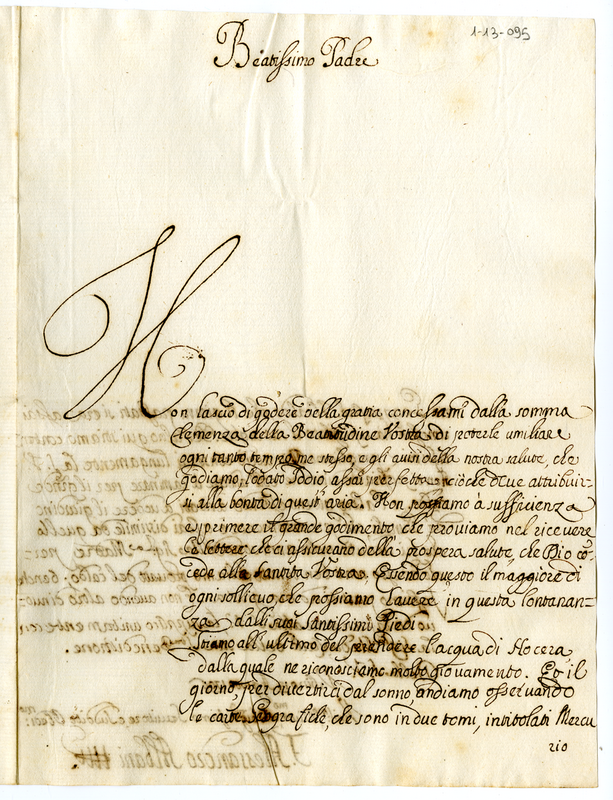 1-13-095
Beatissimo Padre
Non lascio di godere della gratia concessami dalla somma
Clemenza della Beatitudine Vostra di poterle umiliare
ogni tanto tempo me stesso, e gli avvisi della nostra salute, che
godiamo, lodato Iddio, assai perfetta; ciòche deve attribuir-
si alla bontà di quest'aria. Non possiamo à sufficienza
esprimere il grande godimento che proviamo nel ricevere
le lettere, che ci assicurano della prospera salute, che Dio cõ-
cede alla Santità Vostra, Essendo questo il maggiore di
ogni sollievo, che possiamo havere in questa lontanan-
za dalli suoi Santissimi Piedi.
Stiamo all'ultimo del prendere l'acqua di Nocera
dalla quale ne riconosciamo molto giovamento. Et il
giorno, per divertirci dal sonno, andiamo osservando
le carte Geografiche, che sono in due tomi, intitolati Mercu
rio